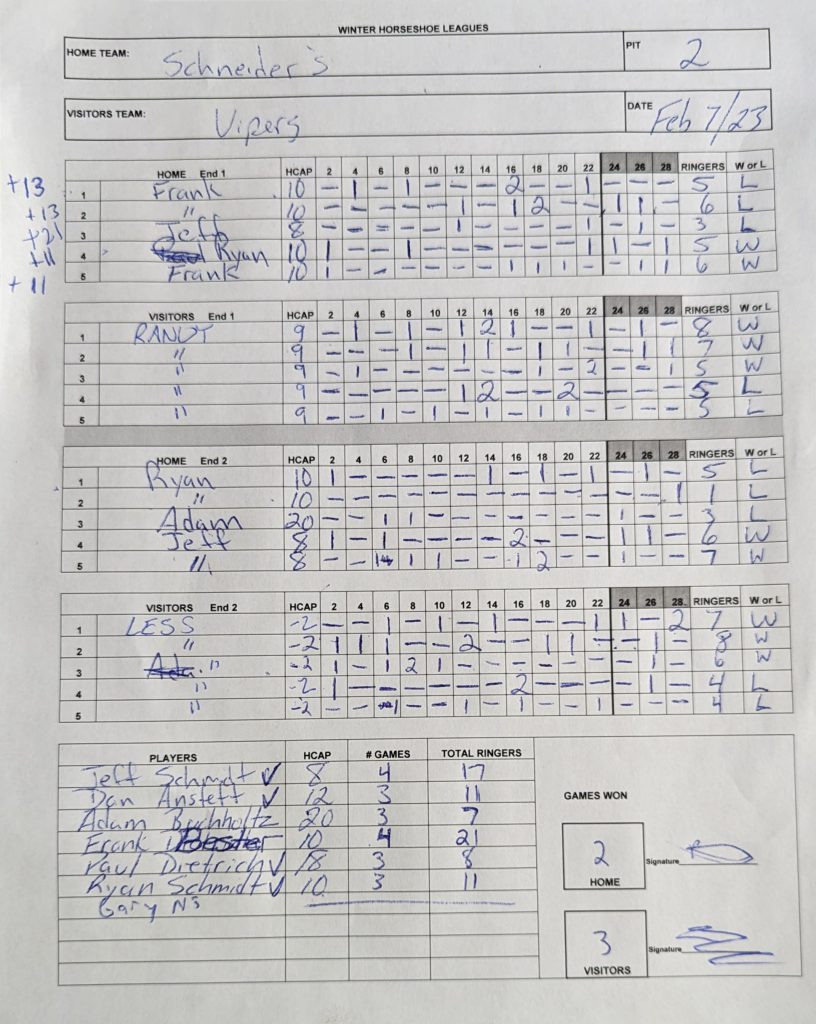 WINTER HORSESHOE LEAGUES
HOME TEAM: Schneider's PIT 2
VISITORS TEAM: Vipers DATE Feb 7/23
HOME End 1 HCAP 2 4 6 8 10 12 14 16 18 20 22 24 26 28 RINGERS W or L
+13 1 Frank 10 – 1 – 1 – – – 2 – – 1 – – – 5 L
+13 2 " 10 – – – – – 1 – 1 2 – – 1 1 – 6 L
+21 3 Jeff 8 – – – – – 1 – – – – 1 – 1 – 3 L
+11 4 Ryan 10 1 – – 1 – – – – – – 1 1 – 1 5 W
+11 5 Frank 10 1 – – – – – – 1 1 1 – – 1 1 6 W
VISITORS End 1 HCAP 2 4 6 8 10 12 14 16 18 20 22 24 26 28 RINGERS W or L
1 RANDY 9 – 1 – 1 – 1 2 1 – – 1 – 1 – 8 W
2 " 9 – – – 1 – 1 1 – 1 1 – – 1 1 7 W
3 " 9 – 1 – – – – – – 1 – 2 – – 1 5 W
4 " 9 – – – – – 1 2 – – 2 – – – – 5 L
5 " 9 – – 1 – 1 – 1 – 1 1 – – – – 5 L
HOME End 2 HCAP 2 4 6 8 10 12 14 16 18 20 22 24 26 28 RINGERS W or L
1 Ryan 10 1 – – – – – 1 – 1 – 1 – 1 – 5 L
2 " 10 – – – – – – – – – – – – – 1 1 L
3 Adam 20 – – 1 1 – – – – – – – 1 – – 3 L
4 Jeff 8 1 – 1 – – – – 2 – – – 1 1 – 6 W
5 " 8 – – 1 1 1 – – 1 2 – – 1 – – 7 W
VISITORS End 2 HCAP 2 4 6 8 10 12 14 16 18 20 22 24 26 28 RINGERS W or L
1 LESS -2 – – 1 – 1 – 1 – – – 1 1 – 2 7 W
2 " -2 1 1 1 – – 2 – – 1 1 – – 1 – 8 W
3 " -2 1 – 1 2 1 – – – – – – – 1 – 6 W
4 " -2 1 – – – – – – 2 – – – – 1 – 4 L
5 " -2 – – 1 – – 1 – 1 – – 1 – – – 4 L
PLAYERS HCAP # GAMES TOTAL RINGERS
Jeff Schmidt ✓ 8 4 17
Dan Anstett ✓ 12 3 11
Adam Buchholtz 20 3 7
Frank 10 4 21
Paul Dietrich ✓ 18 3 8
Ryan Schmidt ✓ 10 3 11
Gary N's
GAMES WON
2 Signature
HOME
3 Signature
VISITORS